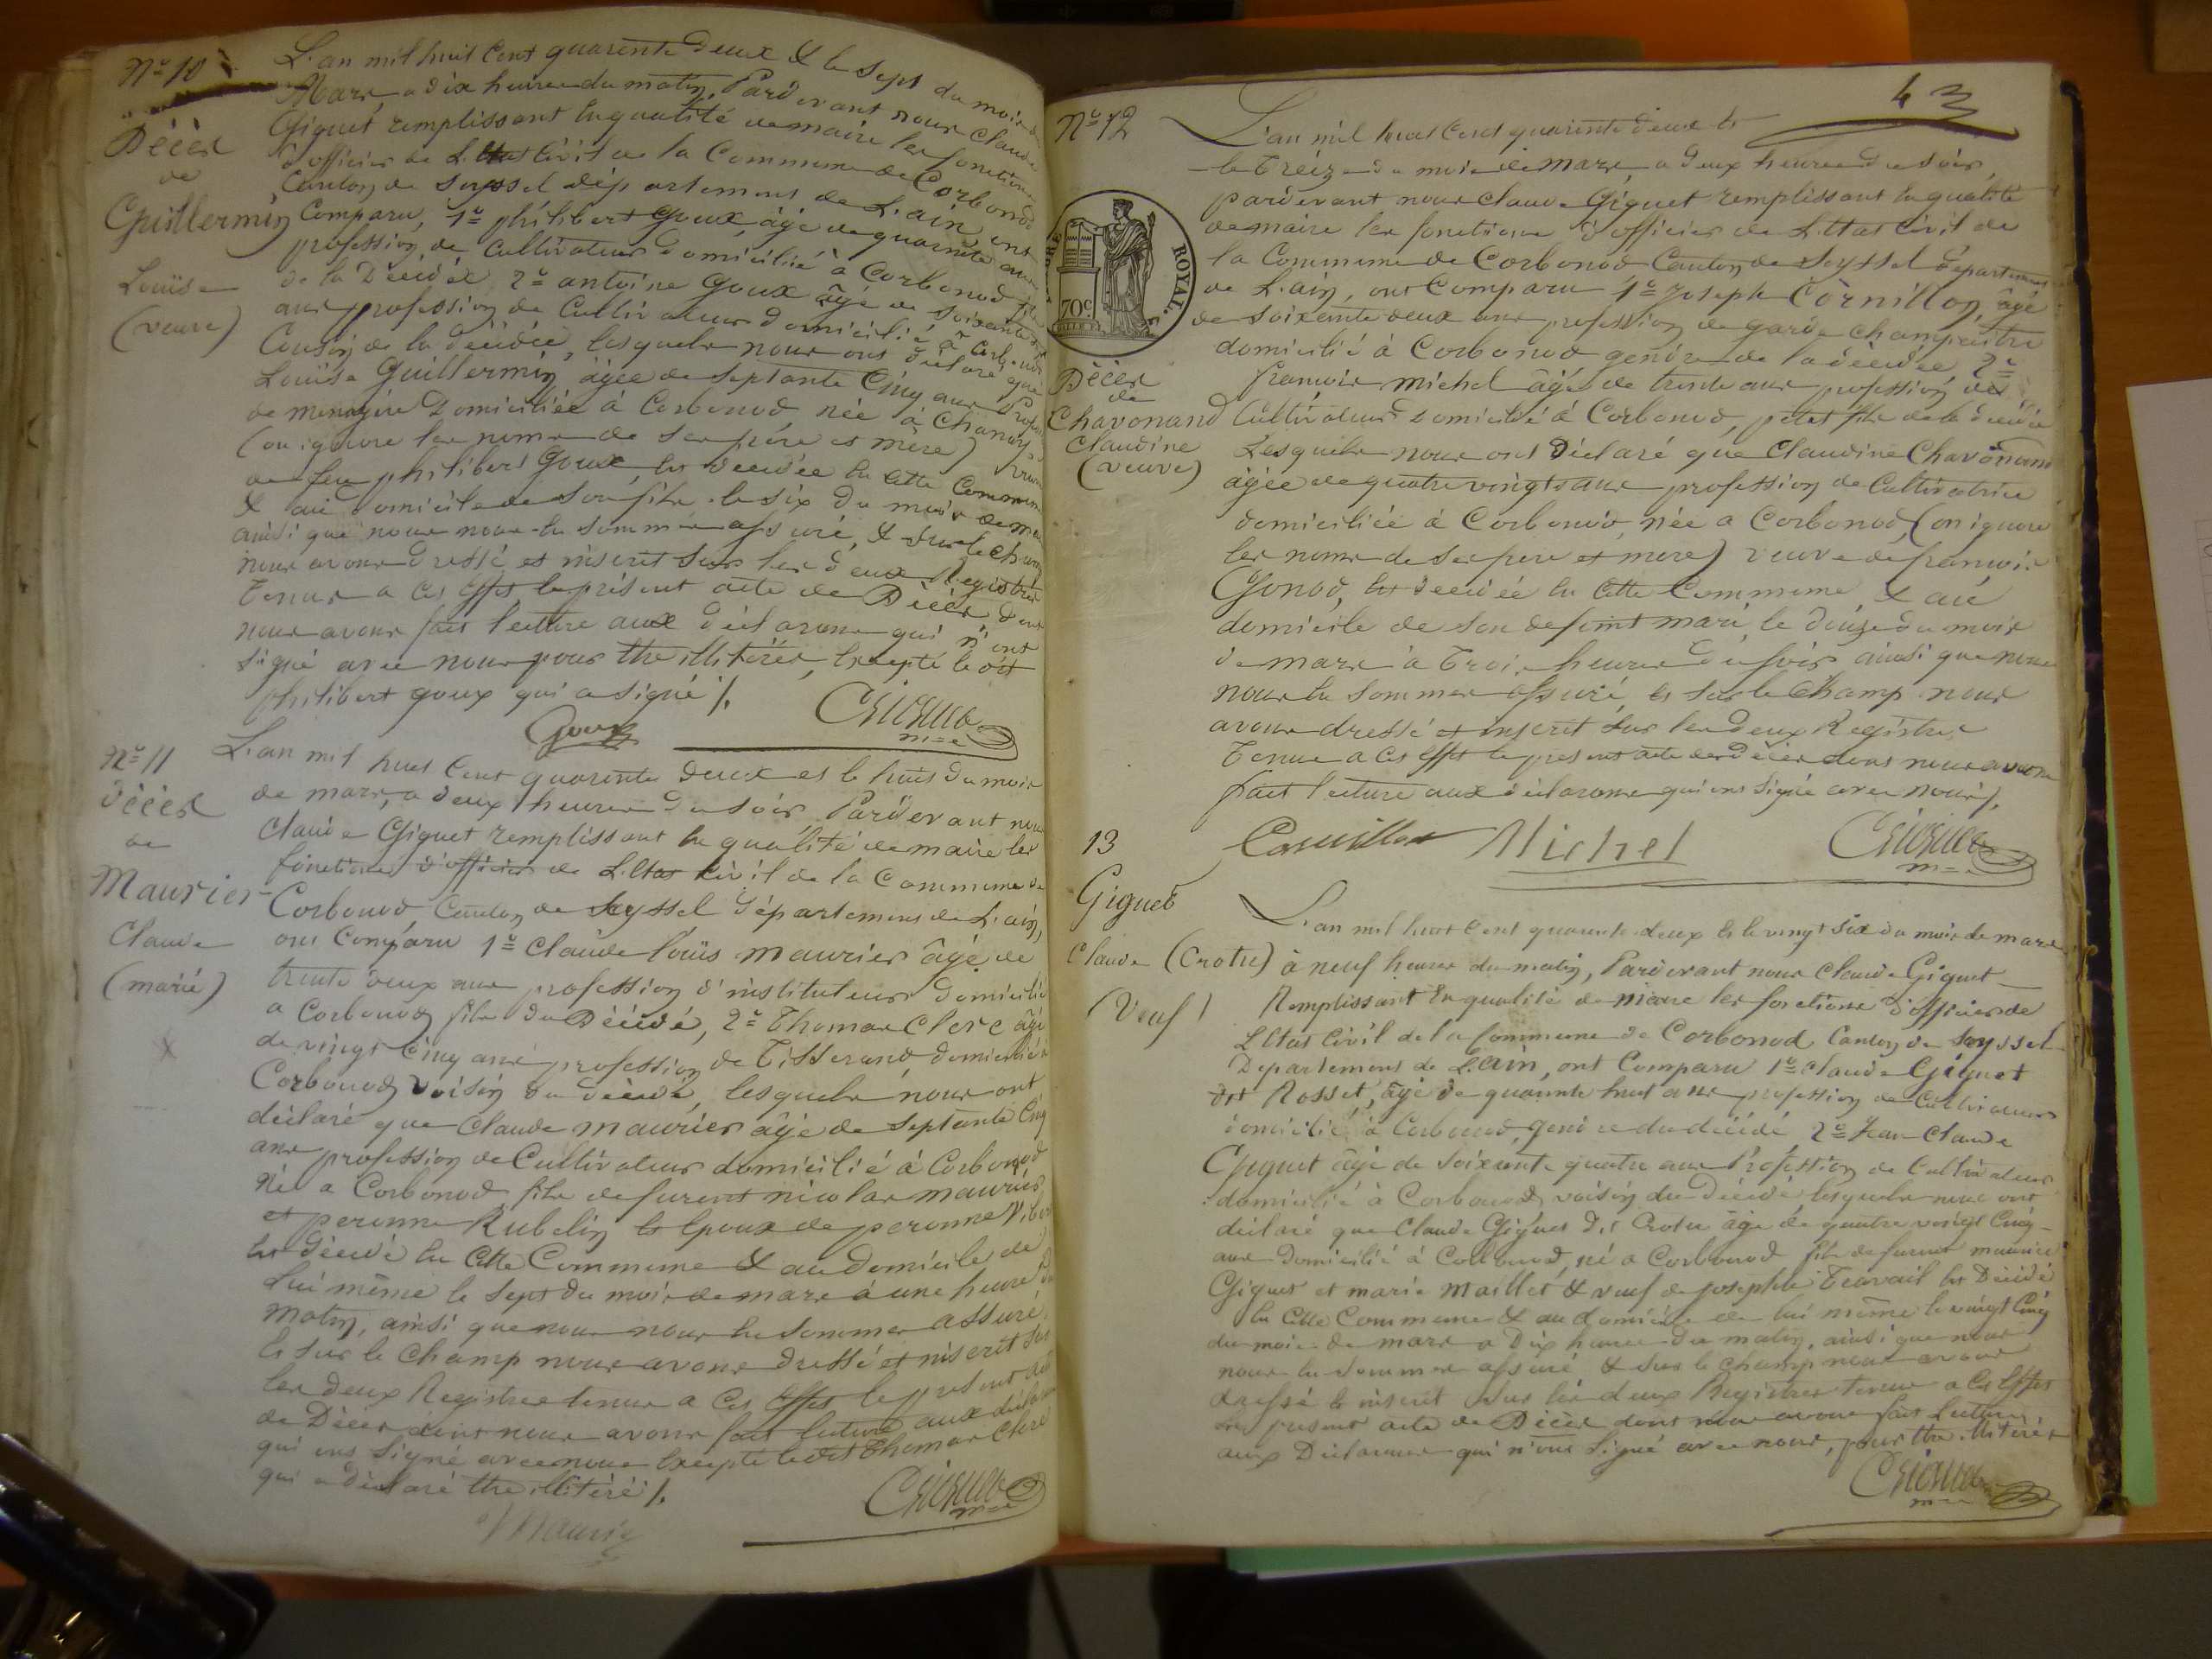 Nº 10
Décès
de
Guillermin
Louise
(veuve)
L'an mil huit cent quarente deux & le sept du mois de
Mars, a dix heures du matin, Pardevant nous Claude
Giguet remplissant En qualité de maire les fonctions
d'officier de L'Etat Civil de la Commune de Corbonod
Canton de Seyssel département de L'ain, ont
Comparu, 1º philibert Goux, âgé de quarente ans
profession de Cultivateur domicilié à Corbonod fils
de la Décédée 2º antoine Goux âgé de soixante
ans profession de Cultivateur domicilié à Corbonod
Cousin de la décédée, lesquels nous ont déclaré que
Louise Guillermin âgée de septante Cinq ans Profession
de menagère Domiciliée à Corbonod née à Chanay
(on ignore les noms de ses père et mère) veuve
de feu philibert Goux, est décédée En cette Commune
& au domicile de son fils le six du mois de mars
ainsi que nous nous En sommes assuré, & sur le champ
nous avons dressé et inscrit sur les deux Registres
Tenus a cet Effet le présent acte de Décès, dont
nous avons fait lecture aux déclarans qui n'ont
signé avec nous pour Etre illitérés, Excepté le dit
philibert goux qui a signé /.
Goux
Giguet
m=e
Nº 11
décès
de
Maurier
Claude
(marié)
L'an mil huit Cent quarente deux et le huit du mois
de mars, a deux heures du soir, Pardevant nous
Claude Giguet remplissant En qualité de maire les
fonctions d'officier de L'Etat Civil de la Commune de
Corbonod, Canton de Seyssel département de L'ain,
ont Comparu 1º Claude Louis maurier âgé de
trente deux ans profession d'instituteur domicilié
a Corbonod fils du Décédé, 2º Thomas Clerc âgé
de vingt Cinq ans profession de Tisserand, domicilié à
Corbonod voisin du décédé, lesquels nous ont
déclaré que Claude maurier âgé de septante Cinq
ans profession de Cultivateur domicilié à Corbonod
Né a Corbonod fils de furent nicolas maurier
et peronne Rubelin Et Epoux de peronne
Est décédé En cette Commune & au Domicile de
Lui même le sept du mois de mars à une heure du
matin, ainsi que nous nous En sommes assuré
Et sur le champ nous avons dressé et inscrit sur
les deux Registres tenus a cet Effet le présent acte
de Décès dont nous avons fait lecture aux déclarans
qui ont signé avec nous Excepté ledit Thomas Clerc
qui a déclaré Etre illitéré /.
Maurier
Giguet
m=e
43
Nº 12
ROYAL
70c
Décès
de
Chavonand
Claudine
(veuve)
L'an mil huit Cent quarente deux Et
le Treize du mois de mars, a deux heures du soir,
pardevant nous Claude Giguet remplissant En qualité
de maire les fonctions d'officier de L'Etat Civil de
la Commune de Corbonod Canton de Seyssel département
de L'ain, ont Comparu 1º Joseph Cornillon, âgé
de soixante deux ans profession de garde champêtre
domicilié à Corbonod gendre de la décédée 2º
françois michel âgé de trente ans profession de
Cultivateur domicilié à Corbonod, petit fils de la décédée
Lesquels nous ont Déclaré que Claudine Chavonand
âgée de quatre vingts ans profession de Cultivatrice
domiciliée à Corbonod, née a Corbonod, (on ignore
les noms de ses pere et mere) veuve de françois
Gonod, Est décédée En cette Commune & au
domicile de son defunt mari le douze du mois
de mars à Trois heures du soir ainsi que nous
nous En sommes assuré, Et sur le Champ nous
avons dressé et inscrit sur les deux Registres
Tenus a cet Effet le present acte de décès dont nous avons
fait lecture aux déclarans qui ont signé avec nous /.
Cornillon
Michel
Giguet
m=e
13
Giguet
Claude (Crotu)
(Veuf)
L'an mil huit Cent quarente deux Et le vingt six du mois de mars
à neuf heures du matin, Pardevant nous Claude Giguet
Remplissant En qualité de maire les fonctions d'officier de
L'Etat Civil de la Commune de Corbonod Canton de Seyssel
Département de L'ain, ont Comparu 1º Claude Giguet
dit Rosset, âgé de quarente huit ans profession de Cultivateur
domicilié à Corbonod, gendre du décédé, 2º Jean Claude
Giguet âgé de soixante quatre ans Profession de Cultivateur
domicilié à Corbonod, voisin du Décédé lesquels nous ont
déclaré que Claude Giguet dit Crotu âgé de quatre vingt Cinq
ans Domicilié à Corbonod, né a Corbonod fils de furent maurice
Giguet et marie Maillet & veuf de Josephte Travail Est Décédé
En cette Commune & au domicile de lui même le vingt Cinq
du mois de mars a Dix heures du matin, ainsi que nous
nous En sommes assuré & sur le champ nous avons
dressé Et inscrit sur les deux Registres Tenus a cet Effet
le present acte de Décès dont nous avons fait Lecture
aux Déclarans qui n'ont Signé avec nous, pour Etre illitérés
Giguet
m=e